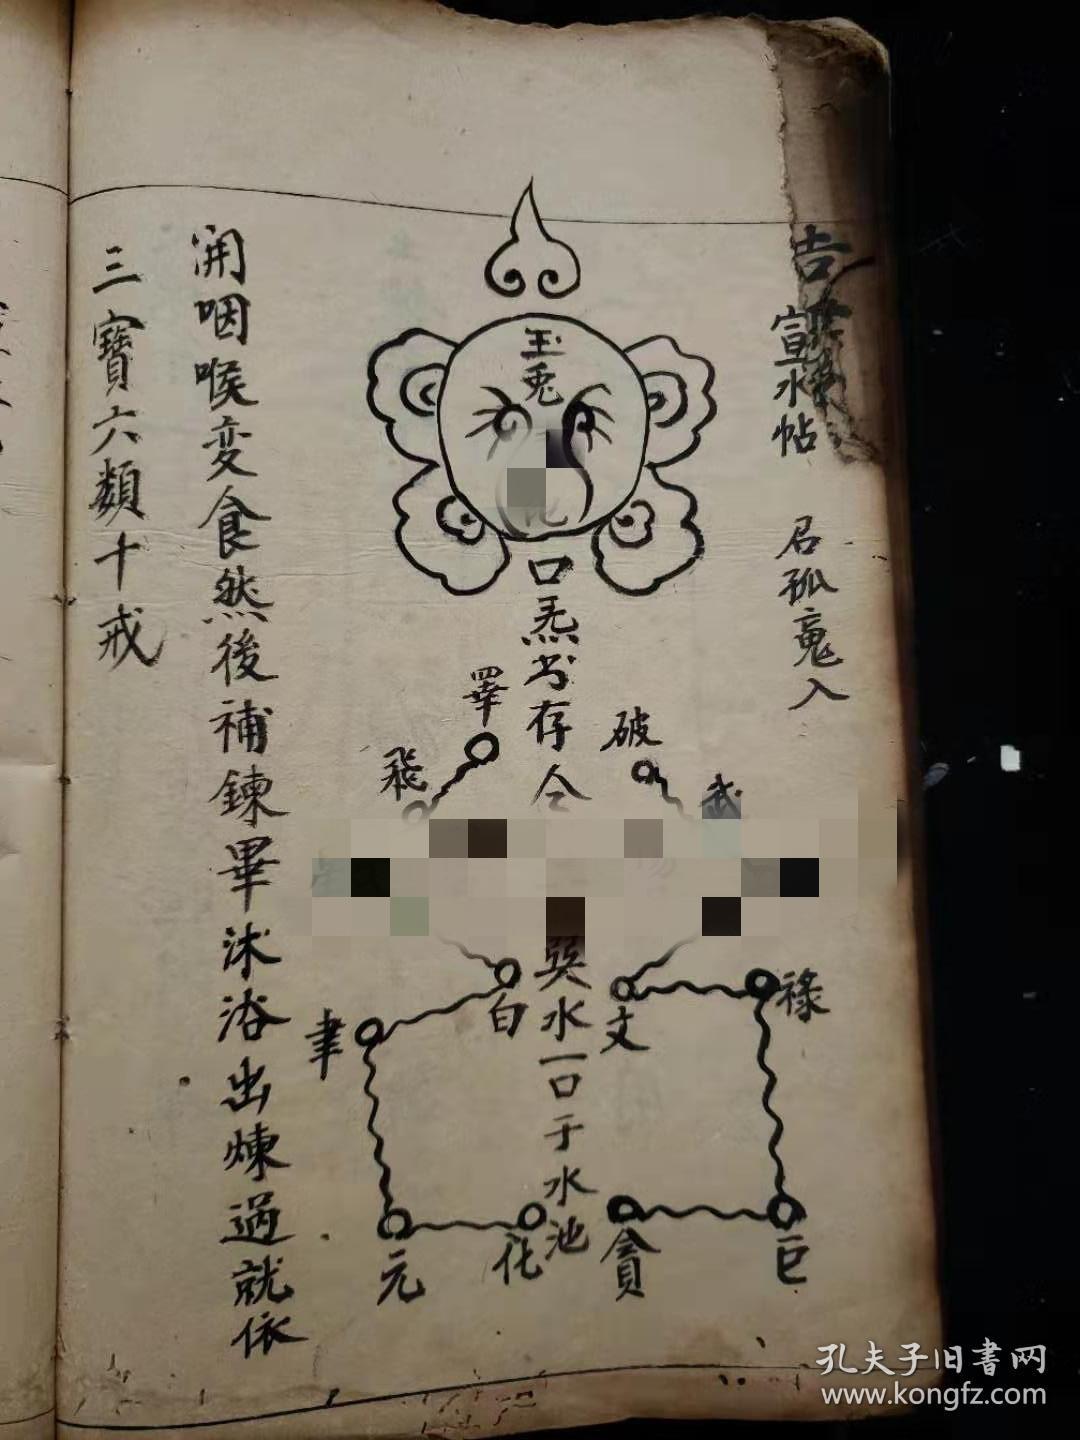 吉
宣水帖　召孤䰟入
玉兎
化
口炁书存仝
巽水一口于水池
破
武
文
祿
巨
貪
罼
飛
白
聿
元
化
開咽喉变食然後補鍊畢沐浴出煉過就依
三寶六類十戒
孔夫子旧書网
www.kongfz.com